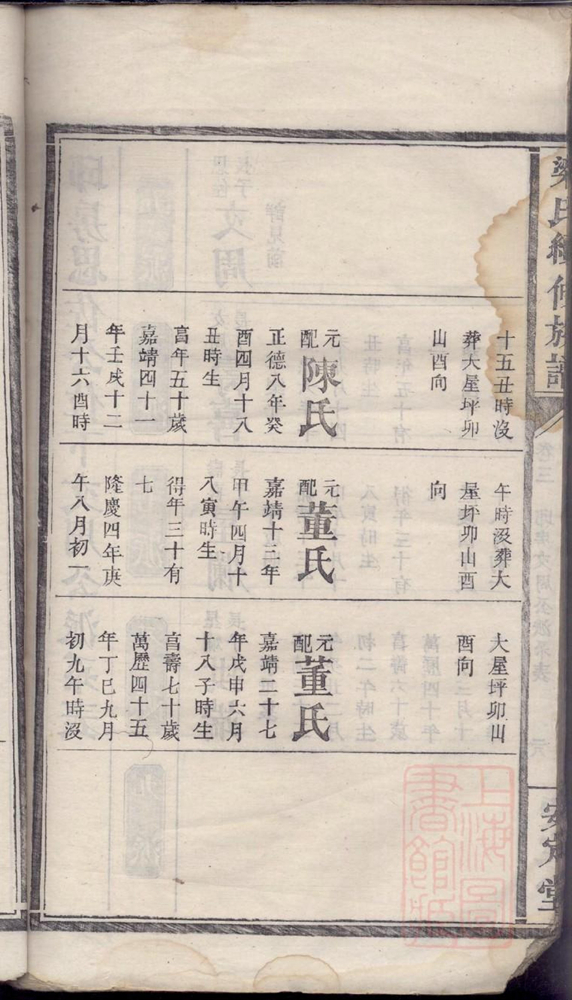 梁氏續修族譜
卷三
安定堂
十五丑時沒
葬大屋坪卯
山酉向
元配陳氏
正德八年癸
酉四月十八
丑時生
高年五十歲
嘉靖四十一
年壬戌十二
月十六酉時
午時沒葬大
屋坪卯山酉
向
元配董氏
嘉靖十三年
甲午四月十
八寅時生
得年三十有
七
隆慶四年庚
午八月初一
大屋坪卯山
酉向
元配董氏
嘉靖二十七
年戊申六月
十八子時生
高壽七十歲
萬歷四十五
年丁巳九月
初九午時沒
上海圖書館藏